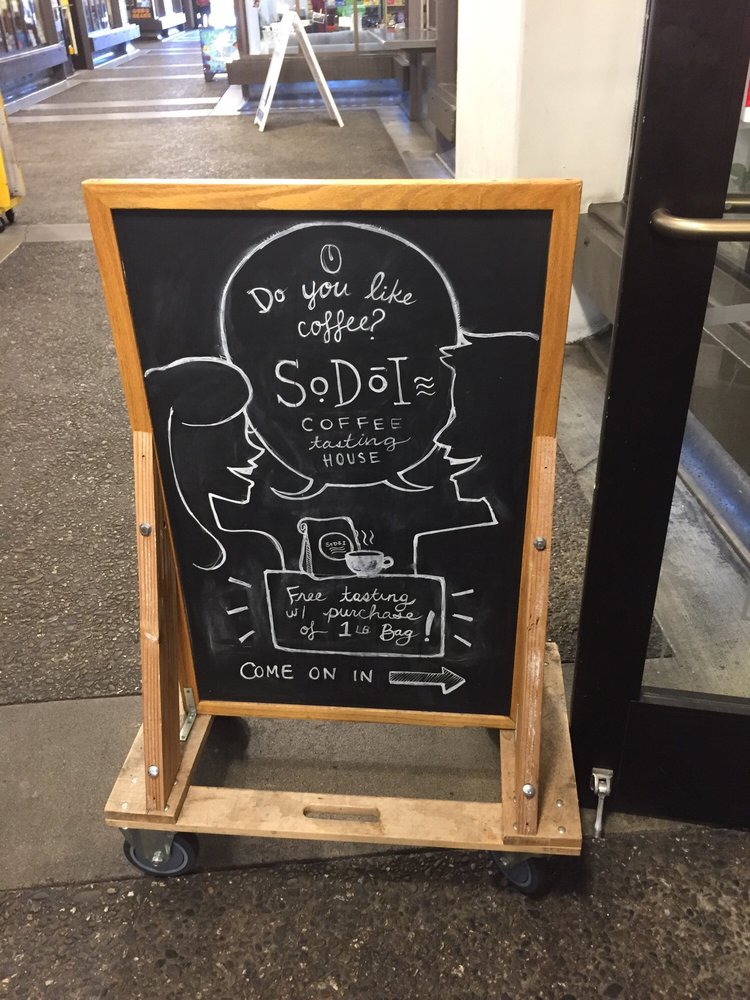 Do you like
coffee?
SoDōI
COFFEE
tasting
HOUSE
SoDōI
Free tasting
w/ purchase
of 1 LB Bag!
COME ON IN